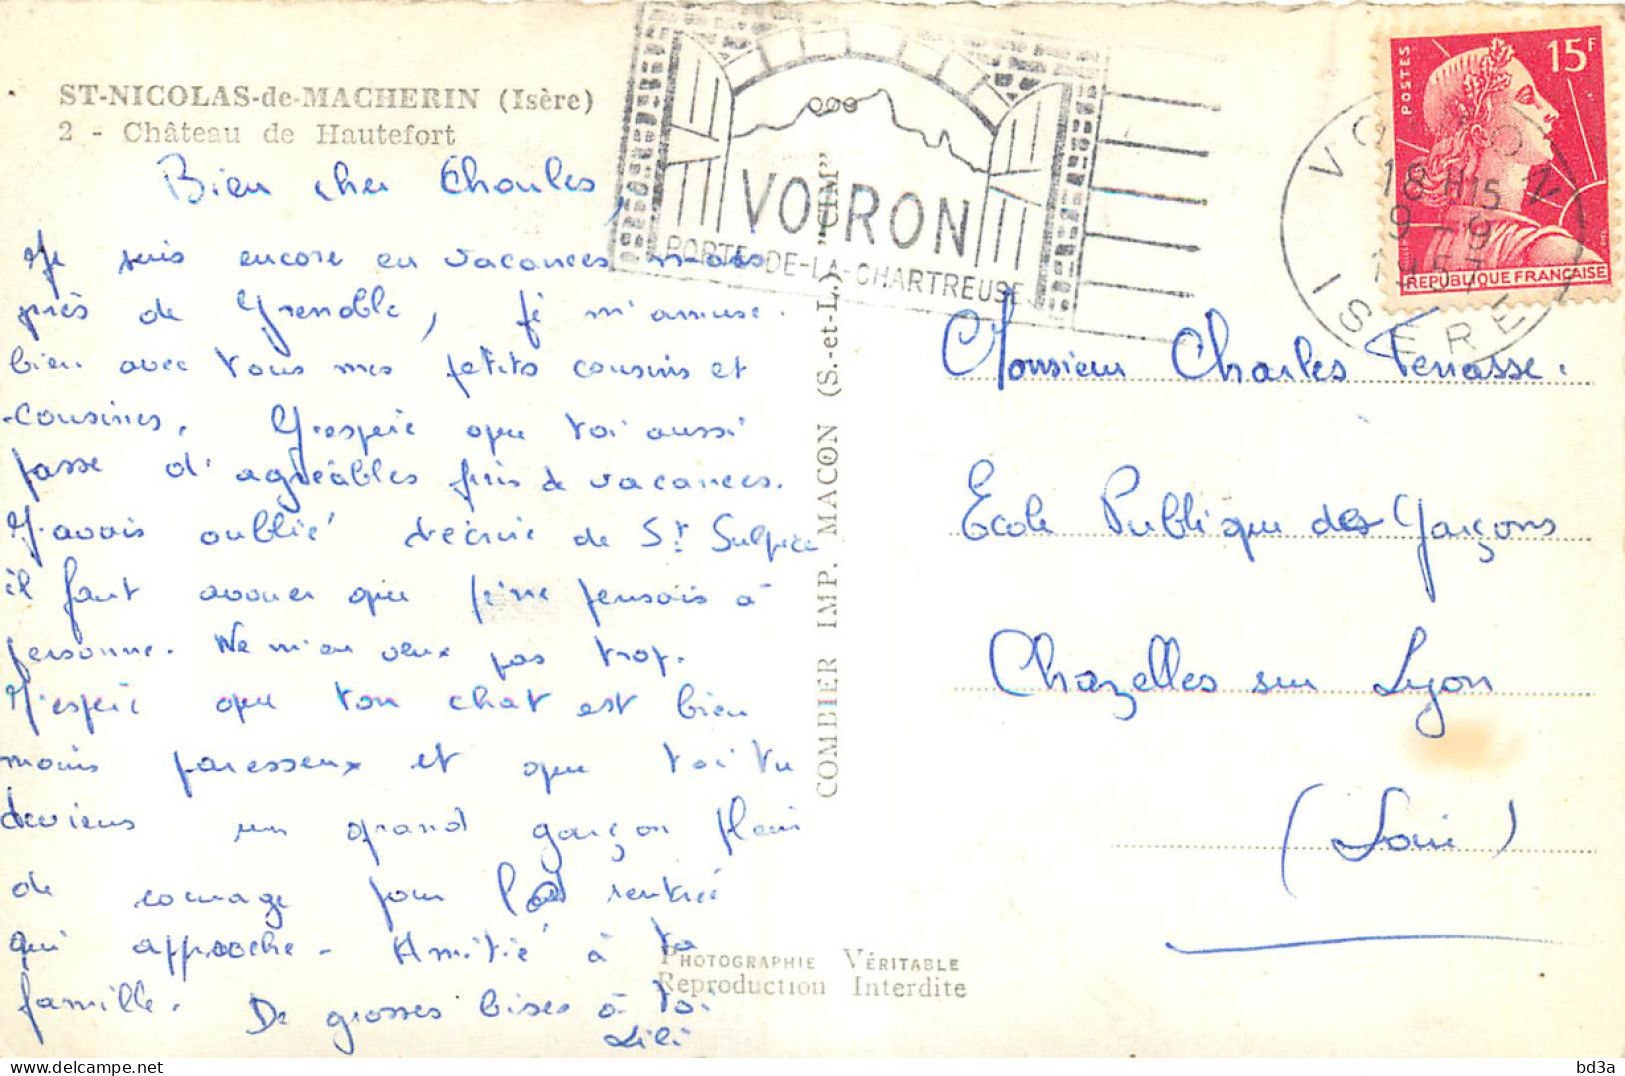 ST-NICOLAS-de-MACHERIN (Isère)
2 - Château de Hautefort
Bien cher Charles,
Je suis encore en vacances
près de Grenoble, je m'amuse
bien avec tous mes petits cousins et
cousines. J'espère que toi aussi
passe d'agréables fins de vacances.
J'avais oublié d'écrire de St Sulpice
il faut avouer que je ne pensais à
personne. Ne m'en veux pas trop.
J'espère que ton chat est bien
moins paresseux et que toi tu
deviens un grand garçon plein
de courage pour la rentrée
qui approche - Amitié à ta
famille. De grosses bises à toi
Lili
VOIRON
PORTE-DE-LA-CHARTREUSE
COMBIER IMP. MACON (S.-et-L.) "CIM"
PHOTOGRAPHIE VÉRITABLE
Reproduction Interdite
POSTES
15F
REPUBLIQUE FRANÇAISE
VOIRON
18H15
9-9
1957
ISERE
Monsieur Charles Terrasse.
Ecole Publique des Garçons
Chazelles sur Lyon
(Loire)
bd3a